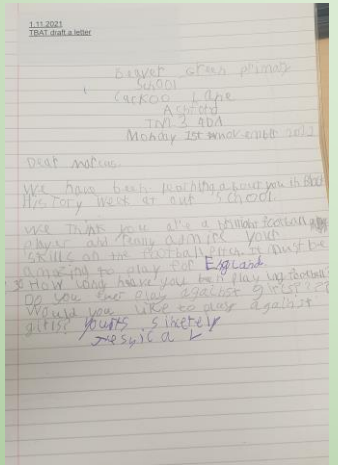 1.11.2021
TBAT draft a letter
Beaver Green primary
School
Cuckoo Lane
Ashford
TN23 4DA
Monday 1st november 2021
Dear Marcus
We have been learning about you in Black
History week at our school.
We think you are a football
player and really admire your
skills on the football pitch. It must be
amazing to play for England
How long have you been playing football?
Do you ever play against girls???
Would you like to play against
girls? yours sincerely
Jessica L